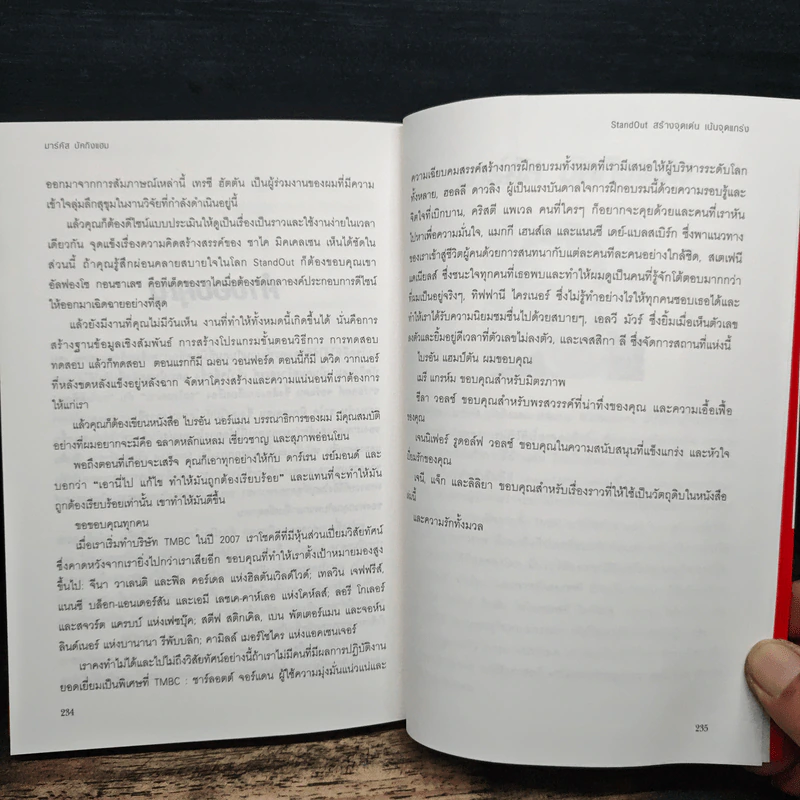 มาร์คัส บัคกิงแฮม
ออกมาจากการสัมภาษณ์เหล่านี้ เทรซี ฮัตตัน เป็นผู้ร่วมงานของผมที่มีความ
เข้าใจลุ่มลึกสุขุมในงานวิจัยที่กำลังดำเนินอยู่นี้
แล้วคุณก็ต้องดีไซน์แบบประเมินให้ดูเป็นเรื่องเป็นราวและใช้งานง่ายในเวลา
เดียวกัน จุดแข็งเรื่องความคิดสร้างสรรค์ของ ชาโค มิคเคลเซน เห็นได้ชัดใน
ส่วนนี้ ถ้าคุณรู้สึกผ่อนคลายสบายใจในโลก StandOut ก็ต้องขอบคุณเขา
อัลฟองโซ กอนซาเลซ คือทีเด็ดของชาโคเมื่อต้องขัดเกลาองค์ประกอบการดีไซน์
ให้ออกมาเฉิดฉายอย่างที่สุด
แล้วยังมีงานที่คุณไม่มีวันเห็น งานที่ทำให้ทั้งหมดนี้เกิดขึ้นได้ นั่นคือการ
สร้างฐานข้อมูลเชิงสัมพันธ์ การสร้างโปรแกรมขั้นตอนวิธีการ การทดสอบ
ทดสอบ แล้วก็ทดสอบ ตอนแรกก็มี ฌอน วอนฟอร์ด ตอนนี้ก็มี เดวิด วากเนอร์
ที่หลังขดหลังแข็งอยู่หลังฉาก จัดหาโครงสร้างและความแน่นอนที่เราต้องการ
ให้แก่เรา
แล้วคุณก็ต้องเขียนหนังสือ ไบรอัน นอร์แมน บรรณาธิการของผม มีคุณสมบัติ
อย่างที่ผมอยากจะมีคือ ฉลาดหลักแหลม เชี่ยวชาญ และสุภาพอ่อนโยน
พอถึงตอนที่เกือบจะเสร็จ คุณก็เอาทุกอย่างให้กับ ดาร์เรน เรย์มอนด์ และ
บอกว่า "เอานี่ไป แก้ไข ทำให้มันถูกต้องเรียบร้อย" และแทนที่จะทำให้มัน
ถูกต้องเรียบร้อยเท่านั้น เขาทำให้มันดีขึ้น
ขอขอบคุณทุกคน
เมื่อเราเริ่มทำบริษัท TMBC ในปี 2007 เราโชคดีที่มีหุ้นส่วนเปี่ยมวิสัยทัศน์
ซึ่งคาดหวังจากเรายิ่งไปกว่าเราเสียอีก ขอบคุณที่ทำให้เราตั้งเป้าหมายมองสูง
ขึ้นไป: จีนา วาเลนติ และฟิล คอร์เดล แห่งฮิลตันเวิลด์ไวด์; เทลวิน เจฟฟรีส์,
แนนซี บล็อก-แอนเดอร์สัน และเอมี เลชเค-คาห์เลอ แห่งโคห์ลส์; ลอรี โกเลอร์
และสจวร์ต แครบบ์ แห่งเฟซบุ๊ค; สตีฟ สติกเคิล, เบน พัตเตอร์แมน และจอห์น
ลินด์เนอร์ แห่งบานานา รีพับบลิก; คามิลล์ เมอร์โชไคร แห่งแอคเซนเจอร์
เราคงทำไม่ได้และไปไม่ถึงวิสัยทัศน์อย่างนี้ถ้าเราไม่มีคนที่มีผลการปฏิบัติงาน
ยอดเยี่ยมเป็นพิเศษที่ TMBC : ชาร์ลอตต์ จอร์แดน ผู้ใช้ความมุ่งมั่นแน่วแน่และ
234
StandOut สร้างจุดเด่น เน้นจุดแกร่ง
ความเฉียบคมสรรค์สร้างการฝึกอบรมทั้งหมดที่เรามีเสนอให้ผู้บริหารระดับโลก
ทั้งหลาย, ฮอลลี ดาวลิง ผู้เป็นแรงบันดาลใจการฝึกอบรมนี้ด้วยความรอบรู้และ
จิตใจที่เบิกบาน, คริสตี แพเวล คนที่ใครๆ ก็อยากจะคุยด้วยและคนที่เราหัน
ไปหาเพื่อความมั่นใจ, แมกกี เฮนส์เล และแนนซี เดย์-แบลสเบิร์ก ซึ่งพาแนวทาง
ของเราเข้าสู่ชีวิตผู้คนด้วยการสนทนากับแต่ละคนทีละคนอย่างใกล้ชิด, สเตเฟนี
แดเนียลส์ ซึ่งชนะใจทุกคนที่เธอพบและทำให้ผมดูเป็นคนที่รู้จักโต้ตอบมากกว่า
ที่ผมเป็นอยู่จริงๆ, ทิฟฟานี ไครเนอร์ ซึ่งไม่รู้ทำอย่างไรให้ทุกคนชอบเธอได้และ
ทำให้เราได้ความนิยมชมชื่นไปด้วยสบายๆ, เอลวี มัวร์ ซึ่งยิ้มเมื่อเห็นตัวเลข
ลงตัวและยิ้มอยู่ดีเวลาที่ตัวเลขไม่ลงตัว, และเจสสิกา ลี ซึ่งจัดการสถานที่แห่งนี้
ไบรอัน แฮมป์ตัน ผมขอบคุณ
เมรี แกรห์ม ขอบคุณสำหรับมิตรภาพ
ชีลา วอลซ์ ขอบคุณสำหรับพรสวรรค์ที่น่าทึ่งของคุณ และความเอื้อเฟื้อ
ของคุณ
เจนนิเฟอร์ รูดอล์ฟ วอลซ์ ขอบคุณในความสนับสนุนที่แข็งแกร่ง และหัวใจ
เปี่ยมรักของคุณ
เจนี, แจ็ก และลิลิยา ขอบคุณสำหรับเรื่องราวที่ให้ใช้เป็นวัตถุดิบในหนังสือ
เล่มนี้
และความรักทั้งมวล
235